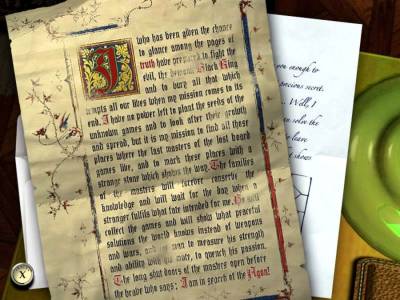 I who has been given the chance
to glance among the pages of
truth have prepared to fight the
evil, the demonic Black King
and to bury all that which
tempts all our lives when my mission comes to its
end. I have no power left to plant the seeds of the
unknown games and to look after their growth
and spread, but it is my mission to find all these
places where the last masters of the lost board
games live, and to mark these places with a
strange stone which shows the way. The families
of the masters will forever conserve the
knowledge and will wait for the day when a
stranger fulfils what fate intended for me. He will
collect the games and will show what peaceful
solutions the world knows instead of weapons
and wars, and man to measure his strength
and ability with his mate, to quench his passion.
The long shut doors of the masters open before
the brave who says: I am in search of the Agon!
you enough to
precious secret.
... Well, I
can solve the
to leave
shows
X